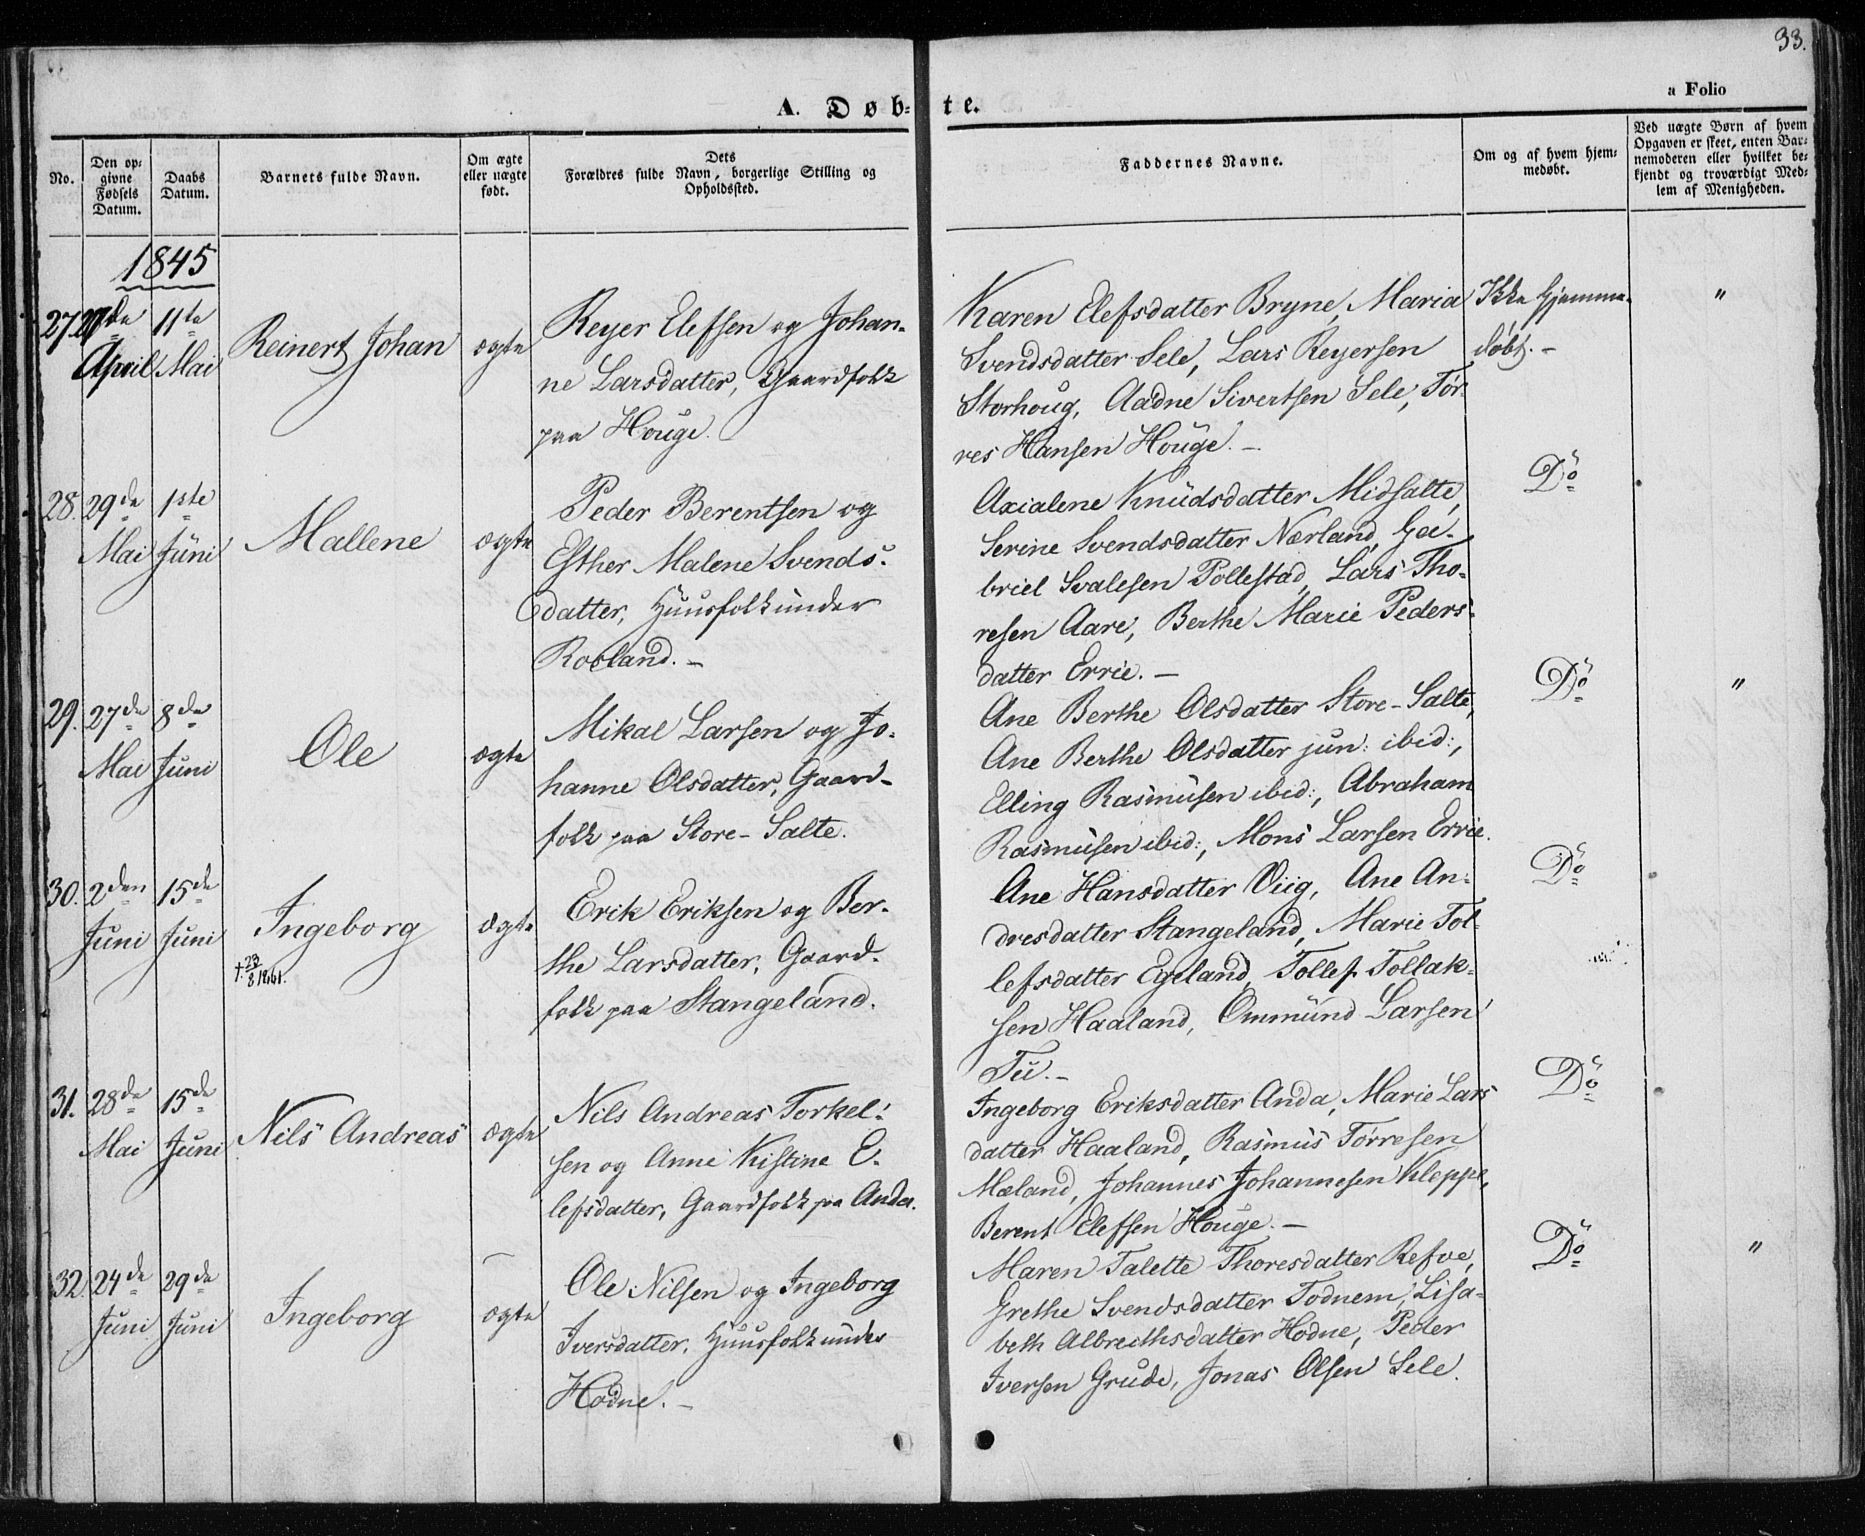 33.
a Folio
A. Døb-te.
No.
Den op-
givne
Fødsels
Datum.
Daabs
Datum.
Barnets fulde Navn.
Om ægte
eller uægte
født.
Dets
Forældres fulde Navn, borgerlige Stilling og
Opholdssted.
Faddernes Navne.
Om og af hvem hjem-
medøbt.
Ved uægte Børn af hvem
Opgaven er skeet, enten Bar-
nemoderen eller hvilket be-
kjendt og troværdigt Med-
lem af Menigheden.
1845
27.
April
11te
Mai
Reinert Johan
ægte
Reyer Elefsen og Johan-
ne Larsdatter, Gaardfolk
paa Houge.
Karen Elefsdatter Bryne, Maria
Svendsdatter Sele, Lars Reyersen
Storhoug, Aadne Sivertsen Sele, Tør-
res Hansen Houge. -
Ikke hjemme-
døbt. -
"
28.
29de
Mai
1ste
Juni
Mallene
ægte
Peder Berentsen og
Esther Malene Svends-
datter, Huusfolk under
Roeland. -
Axialene Knudsdatter Midsalte,
Serine Svendsdatter Nærland, Ga-
briel Svalesen Pollestad, Lars Tho-
resen Aare, Berthe Marie Peders-
datter Errie. -
Do
29.
27de
Mai
8de
Juni
Ole
ægte
Mikal Larsen og Jo-
hanne Olsdatter, Gaard-
folk paa Store-Salte.
Ane Berthe Olsdatter Store-Salte,
Ane Berthe Olsdatter jun: ibid:,
Elling Rasmusen ibid:, Abraham
Rasmusen ibid:, Mons Larsen Errie.
Do
"
30.
2den
Juni
15de
Juni
Ingeborg
†. 23/8 1861.
ægte
Erik Eriksen og Ber-
the Larsdatter, Gaard-
folk paa Stangeland.
Ane Hansdatter Viig, Ane An-
dresdatter Stangeland, Marie Tol-
lefsdatter Egeland, Tollef Tollak-
sen Haaland, Ommund Larsen
Tu. -
Do
31.
28de
Mai
15de
Juni
Nils Andreas
ægte
Nils Andreas Torkel-
sen og Anne Kistine E-
lefsdatter, Gaardfolk paa Anda.
Ingeborg Eriksdatter Anda, Marie Lars
datter Haaland, Rasmus Tørresen
Mæland, Johannes Johannesen Kleppe,
Berent Elefsen Houge. -
Do
32.
24de
Juni
29de
Juni
Ingeborg
ægte
Ole Nilsen og Ingeborg
Iversdatter, Huusfolk under
Hodne. -
Maren Talette Thoresdatter Refve,
Grethe Svendsdatter Todnem, Lisa-
beth Albrecthsdatter Hodne, Peder
Iversen Grude, Jonas Olsen Sele.
Do
"